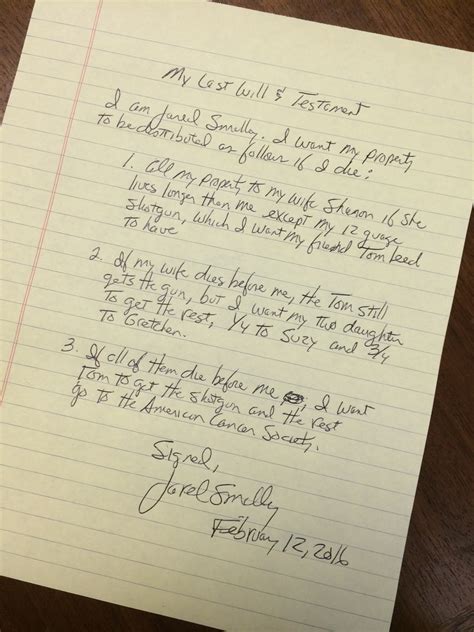 My Last Will & Testament
I am Jared Smully. I want my property
to be distributed as follows if I die:
1. All my property to my wife Shanon if she
lives longer than me except my 12 guage
shotgun, which I want my friend Tom Leed
to have
2. If my wife dies before me, the Tom still
gets the gun, but I want my two daughter
to get the rest, 1/4 to Suzy and 3/4
to Gretchen.
3. If all of them die before me, I want
Tom to get the shotgun and the rest
go to the American Cancer Society.
Signed,
Jared Smully
February 12, 2016